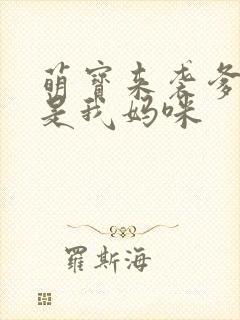 萌寶来袭爹
是我妈咪
羅斯海